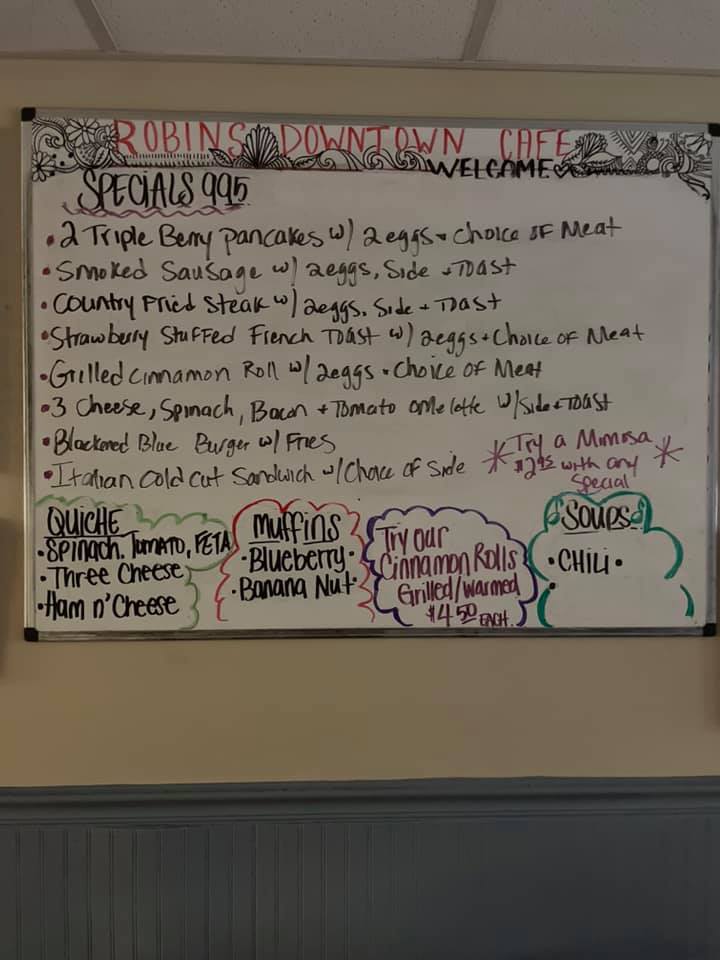 ROBINS DOWNTOWN CAFE
WELCOME
SPECIALS 9.95
• 2 Triple Berry Pancakes w/ 2 eggs + Choice OF Meat
• Smoked Sausage w/ 2 eggs, Side + Toast
• Country Fried Steak w/ 2 eggs, Side + Toast
• Strawberry Stuffed French Toast w/ 2 eggs + Choice of Meat
• Grilled Cinnamon Roll w/ 2 eggs + Choice of Meat
• 3 Cheese, Spinach, Bacon + Tomato omelotte w/ Side + Toast
• Blackened Blue Burger w/ Fries
• Italian Cold Cut Sandwich w/ Choice of Side
Try a Mimosa
$2.95 with any
Special
QUICHE
• SPINACH, TOMATO, FETA
• Three Cheese
• Ham n' Cheese
Muffins
• Blueberry •
• Banana Nut •
Try our
Cinnamon Rolls
Grilled/Warmed
$4.50 EACH.
Soups
• CHILI •